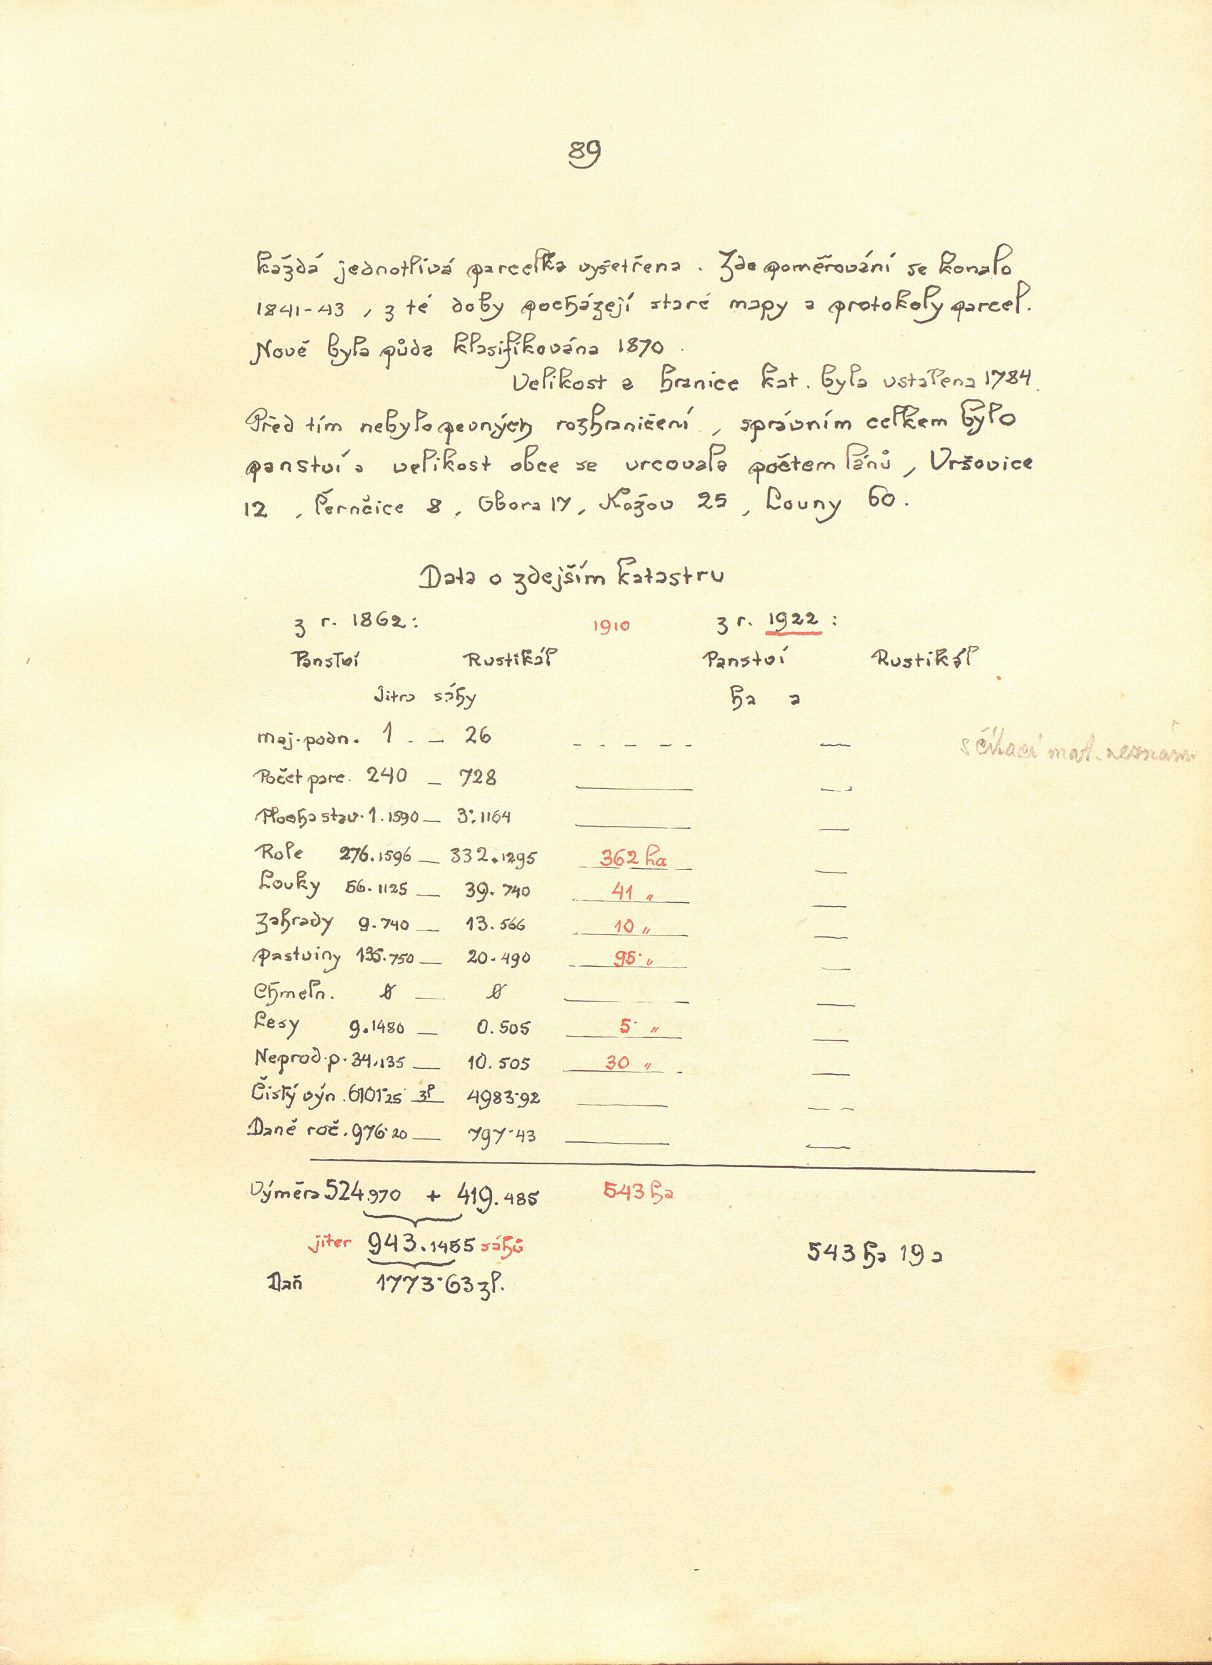 89
každá jednotlivá parcelka vyšetřena. Zde poměřování se konalo
1841-43, z té doby pocházejí staré mapy a protokoly parcel.
Nově byla půda klasifikována 1870.
Velikost a hranice kat. byla ustálena 1784.
Před tím nebylo pevných rozhraničení, správním celkem bylo
panství a velikost obce se urcovala počtem lánů, Vršovice
12, Černčice 8, Obora 17, Kožov 25, Louny 60.
Data o zdejším katastru
z r. 1862: 1910 z r. 1922:
Panství Rustikál Panství Rustikál
Jitra sáhy ha a
maj. podn. 1 . — 26 - - - - - —
Počet parc. 240 — 728 — —
Plocha stav. 1.1590 — 3.1164 — —
Role 276.1596 — 332.1295 362 ha —
Louky 56.1125 — 39.740 41 „ —
Zahrady 9.740 — 13.566 10 „ —
Pastviny 135.750 — 20.490 95 „ —
Chmeln. 0 — 0 — —
Lesy 9.1480 — 0.505 5 „ —
Neprod. p. 34.135 — 10.505 30 „ —
Čistý výn. 6101·25 zl 4983·92 — —
Daně roč. 976·20 — 797·43 — —
Výměra 524.970 + 419.485 543 ha
jiter 943.1455 sáhů 543 ha 19 a
Daň 1773·63 zl.
sčítací mat. neznám